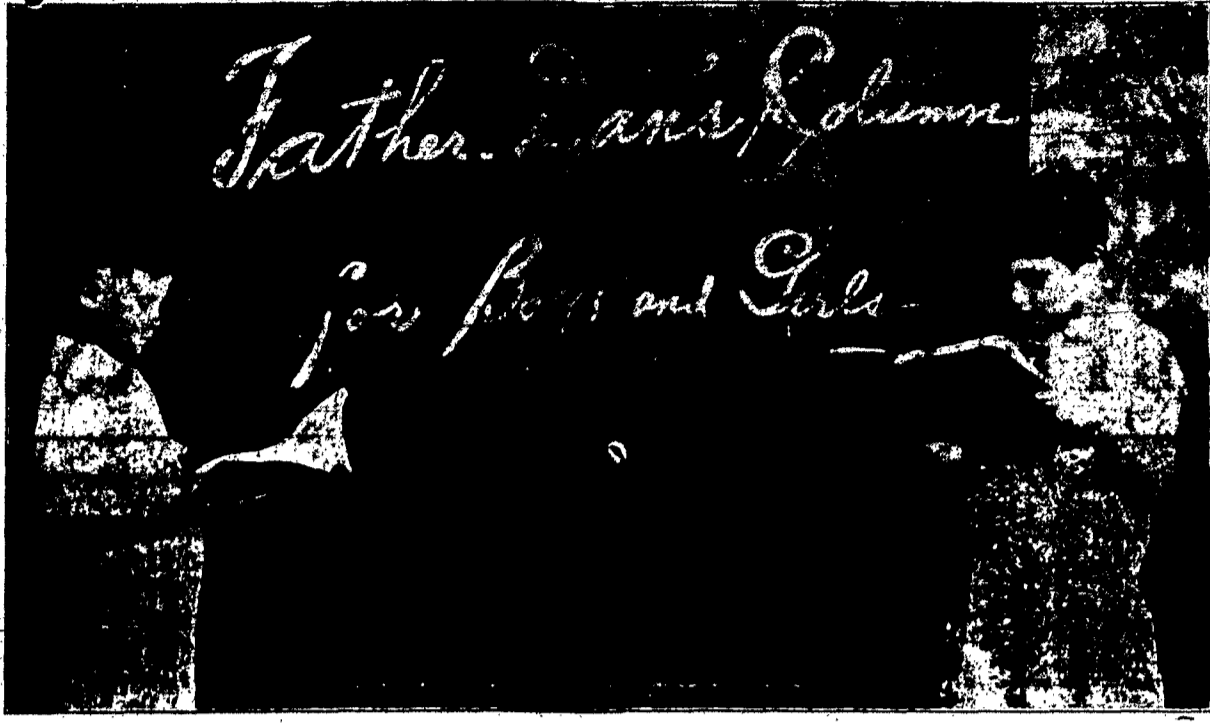 Father Dan's Column
for Boys and Girls